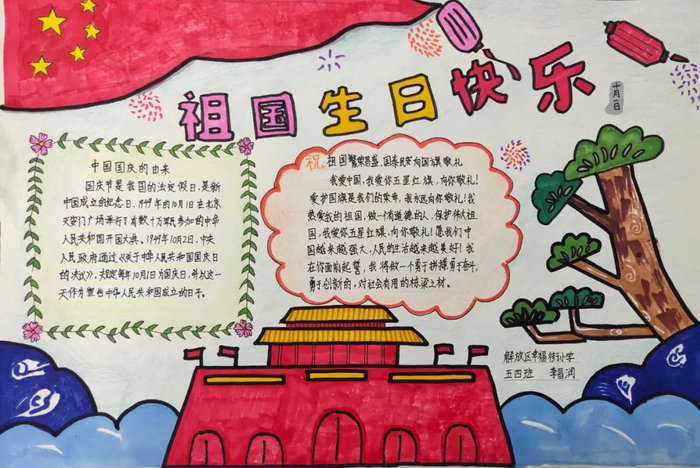 祖国生日快乐
十月一日
中国国庆的由来
国庆节是我国的法定假日,是新
中国成立的纪念日,1949年的10月1日在北京
天安门广场举行了有数十万军民参加的中华
人民共和国开国大典。1949年10月2日,中央
人民政府通过《关于中华人民共和国国庆日
的决议》,规定每年10月1日为国庆日,并以这一
天作为宣告中华人民共和国成立的日子。
祝祖国繁荣昌盛,国泰民安向国旗敬礼
我爱中国,我爱你五星红旗,向你敬礼!
爱护国旗是我们的荣幸,我为您向你敬礼!我
热爱我的祖国,做一个有道德的人,保护伟大祖
国,我爱你五星红旗,向你敬礼!愿我们中
国越来越强大,人民的生活越来越美好!我
在你面前起誓,我将做一个勇于拼搏勇于奋斗,
勇于创新的,对社会有用的栋梁之材。
解放区幸福街小学
五四班 李昌润